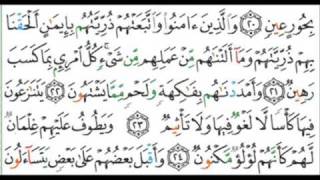 بِحُورٍ عِينٍ ﴿٢٠﴾ وَالَّذِينَ ءَامَنُوا وَاتَّبَعَتْهُمْ ذُرِّيَّتُهُم بِإِيمَانٍ أَلْحَقْنَا
بِهِمْ ذُرِّيَّتَهُمْ وَمَا أَلَتْنَاهُم مِّنْ عَمَلِهِم مِّن شَيْءٍ كُلُّ امْرِئٍ بِمَا كَسَبَ
رَهِينٌ ﴿٢١﴾ وَأَمْدَدْنَاهُم بِفَاكِهَةٍ وَلَحْمٍ مِّمَّا يَشْتَهُونَ ﴿٢٢﴾ يَتَنَازَعُونَ
فِيهَا كَأْسًا لَّا لَغْوٌ فِيهَا وَلَا تَأْثِيمٌ ﴿٢٣﴾ وَيَطُوفُ عَلَيْهِمْ غِلْمَانٌ
لَّهُمْ كَأَنَّهُمْ لُؤْلُؤٌ مَّكْنُونٌ ﴿٢٤﴾ وَأَقْبَلَ بَعْضُهُمْ عَلَى بَعْضٍ يَتَسَاءَلُونَ